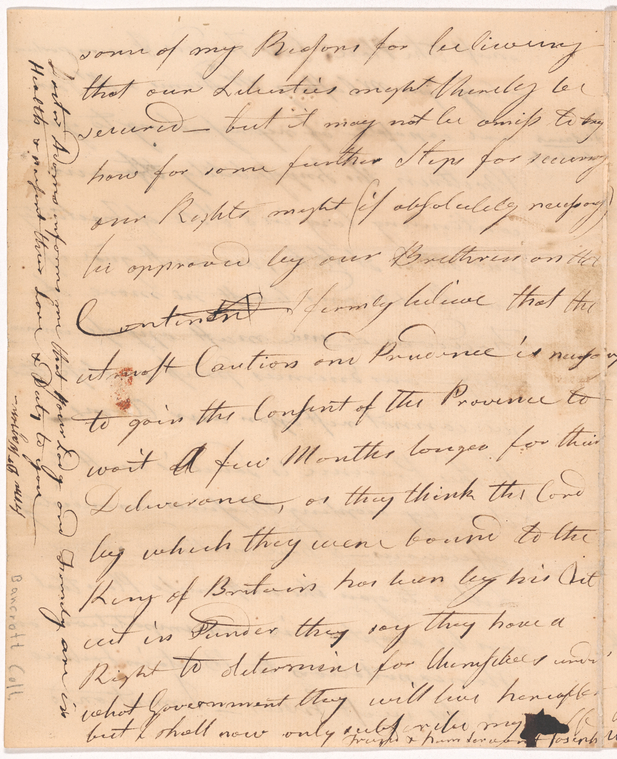 some of my Reasons for believing
that our Liberties might thereby be
secured — but it may not be amiss to say
how far some further Steps for securing
our Rights might (if absolutely necessary)
be approved by our Brethren on the
Continent I firmly believe that the
utmost Caution and Prudence is necessary
to gain the Consent of the Province to
wait a few Months longer for their
Deliverance, as they think the Cord
by which they were bound to the
King of Britain has been by his Act
cut in Sunder they say they have a
Right to determine for themselves under
what Government they will live hereafter
but I shall now only subscribe my
Friend & humble Joseph
Doctor Adams informs me that your Lady and Family are in
Health & present their Love & Duty to you
Bancroft Coll.